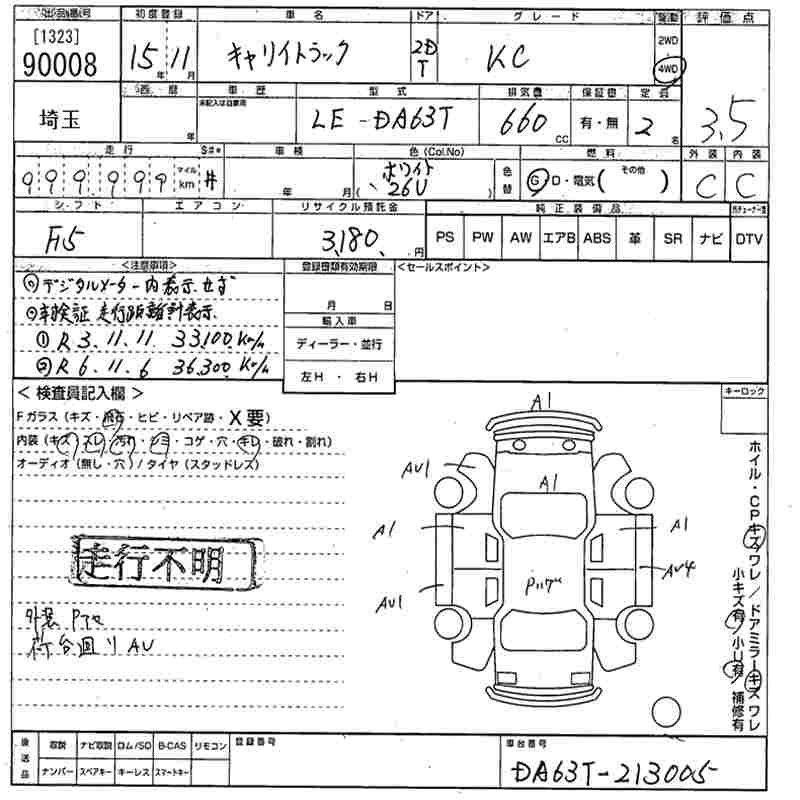 出品番号 初度登録 車名 ドア グレード 駆動 評価点
[1323] 90008 15年11月 キャリイトラック 2D T KC 2WD 4WD 3.5
埼玉 西暦 年 車歴 未記入は自家用 型式 LE-DA63T 排気量 660cc 保証書 有・無 定員 2名
走行 S#* 車検 色(Col.No) 燃料 外装 内装
999999 マイル km # 年 月 ホワイト (26U) 色替 G D・電気(その他 ) C C
シフト エアコン リサイクル預託金 純正装備品
F5 3,180円 PS PW AW エアB ABS 革 SR ナビ DTV
<注意事項> 登録書類有効期限 <セールスポイント>
デジタルメーター内表示せず
車検証 走行距離計表示 月 日
① R3.11.11 33,100Km/h 輸入車
② R6.11.6 36,300Km/h ディーラー・並行
左H・右H
<検査員記入欄> キーロック
Fガラス(キズ・飛石・ヒビ・リペア跡・X要)
内装(キズ・スレ・汚れ・シミ・コゲ・穴・キレ・破れ・割れ)
オーディオ(無し・穴)/タイヤ(スタッドレス)
A1
AU1 A1
A1 A1
AU1 AU4
走行不明
外装
荷台回り AU
ホイル・CPキズワレ/ドアミラーキズワレ
小キズ有/小U有/補修有
後送品 取説 ナビ取説 ロム/SD B-CAS リモコン 登録番号 車台番号
ナンバー スペアキー キーレス スマートキー DA63T-213005